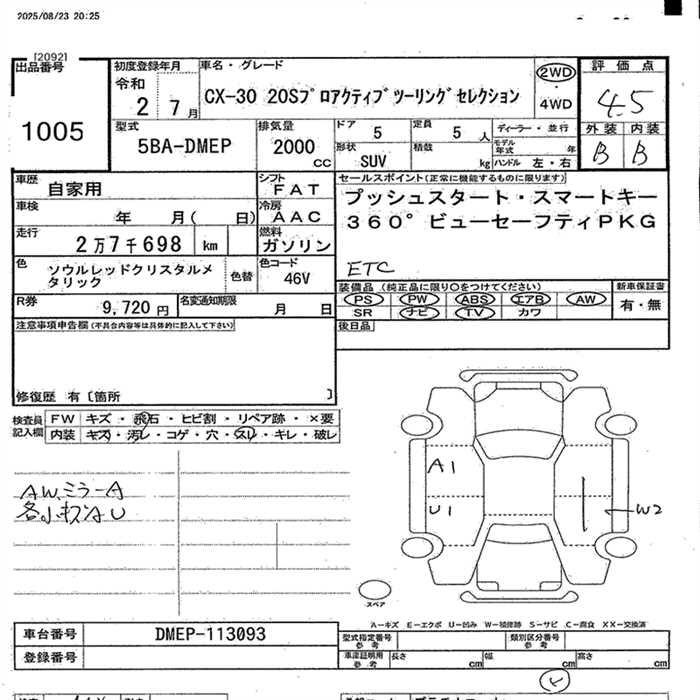 2025/08/23 20:25
[2092]
出品番号
1005
初度登録年月
令和
2 7月
車名・グレード
CX-30 20Sプロアクティブツーリングセレクション
2WD
・
4WD
評価点
4.5
外装 内装
B B
型式
5BA-DMEP
排気量
2000
cc
ドア
5
定員
5人
ディーラー・並行
形状
SUV
積載
kg
モデル年式 年
ハンドル 左・右
車歴
自家用
シフト
FAT
車検
年 月( 日)
冷房
AAC
走行
2万7千698 km
燃料
ガソリン
色
ソウルレッドクリスタルメタリック
色替
色コード
46V
R券
9,720円
名変通知期限
月 日
セールスポイント(正常に機能するものに限ります)
プッシュスタート・スマートキー
360°ビューセーフティPKG
ETC
装備品 (純正品に限り○をつけてください)
PS PW ABS エアB AW
SR ナビ TV カワ
新車保証書
有・無
後日品
注意事項申告欄(不具合内容等は具体的に記入して下さい)
修復歴 有〔箇所 〕
検査員
記入欄
FW キズ・飛石・ヒビ割・リペア跡・×要
内装 キズ・汚レ・コゲ・穴・スレ・キレ・破レ
AW.ミラーA
各小キズAU
A1
U1
W2
スペア
A-キズ E-エクボ U-凹み W-補修跡 S-サビ C-腐食 XX-交換済
車台番号
DMEP-113093
登録番号
型式指定番号
参考
類別区分番号
参考
車庫証明用
参考
長さ cm
幅 cm
高さ cm